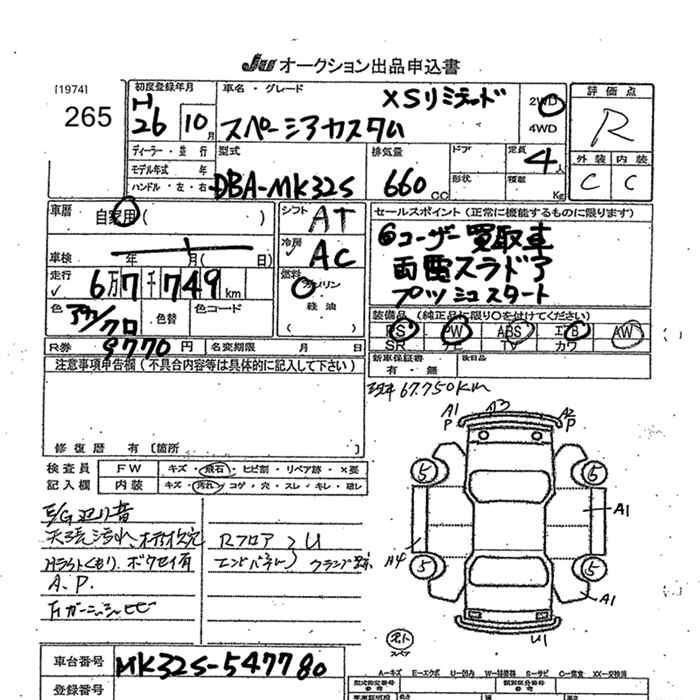 JU オークション出品申込書
[1974]
265
初度登録年月
H
26 10月
車名・グレード
XSリミテッド
スペーシアカスタム
2WD
4WD
評価点
R
外装 内装
C C
ディーラー・並行
モデル年式 年
ハンドル・左・右
型式
DBA-MK32S
排気量
660 CC
ドア
形状
定員
4人
積載
Kg
車歴
自家用( )
シフト
AT
冷房
AC
車検 年 月( 日)
走行
6万7千749km
燃料
ガソリン
軽油
( )
色
アカ/クロ
色替
色コード
R券 9770円
名変期限 月 日
セールスポイント(正常に機能するものに限ります)
◎ユーザー買取車
両電スラドア
プッシュスタート
装備品(純正品に限り○を付けてください)
PS PW ABS エアB AW
SR ナビ TV カワ
新車保証書
有・無
後日品
現車67.750km
注意事項申告欄(不具合内容等は具体的に記入して下さい)
修復歴 有〔箇所 〕
検査員
記入欄
FW キズ・飛石・ヒビ割・リペア跡・X要
内装 キズ・汚れ・コゲ・穴・スレ・キレ・破レ
E/G辺り音
天張汚れ、
ボウセイ有
A.P.
Rフロア
エンドパネル
U
クランプ跡
A1 P A3 A2 P
5 5
A1
A4
5 5
A1
U1
車台番号 MK32S-547780
登録番号
A-キズ E-エクボ U-凹み W-補修跡 S-サビ C-腐食 XX-交換済
型式指定番号
参考
類別区分番号
参考